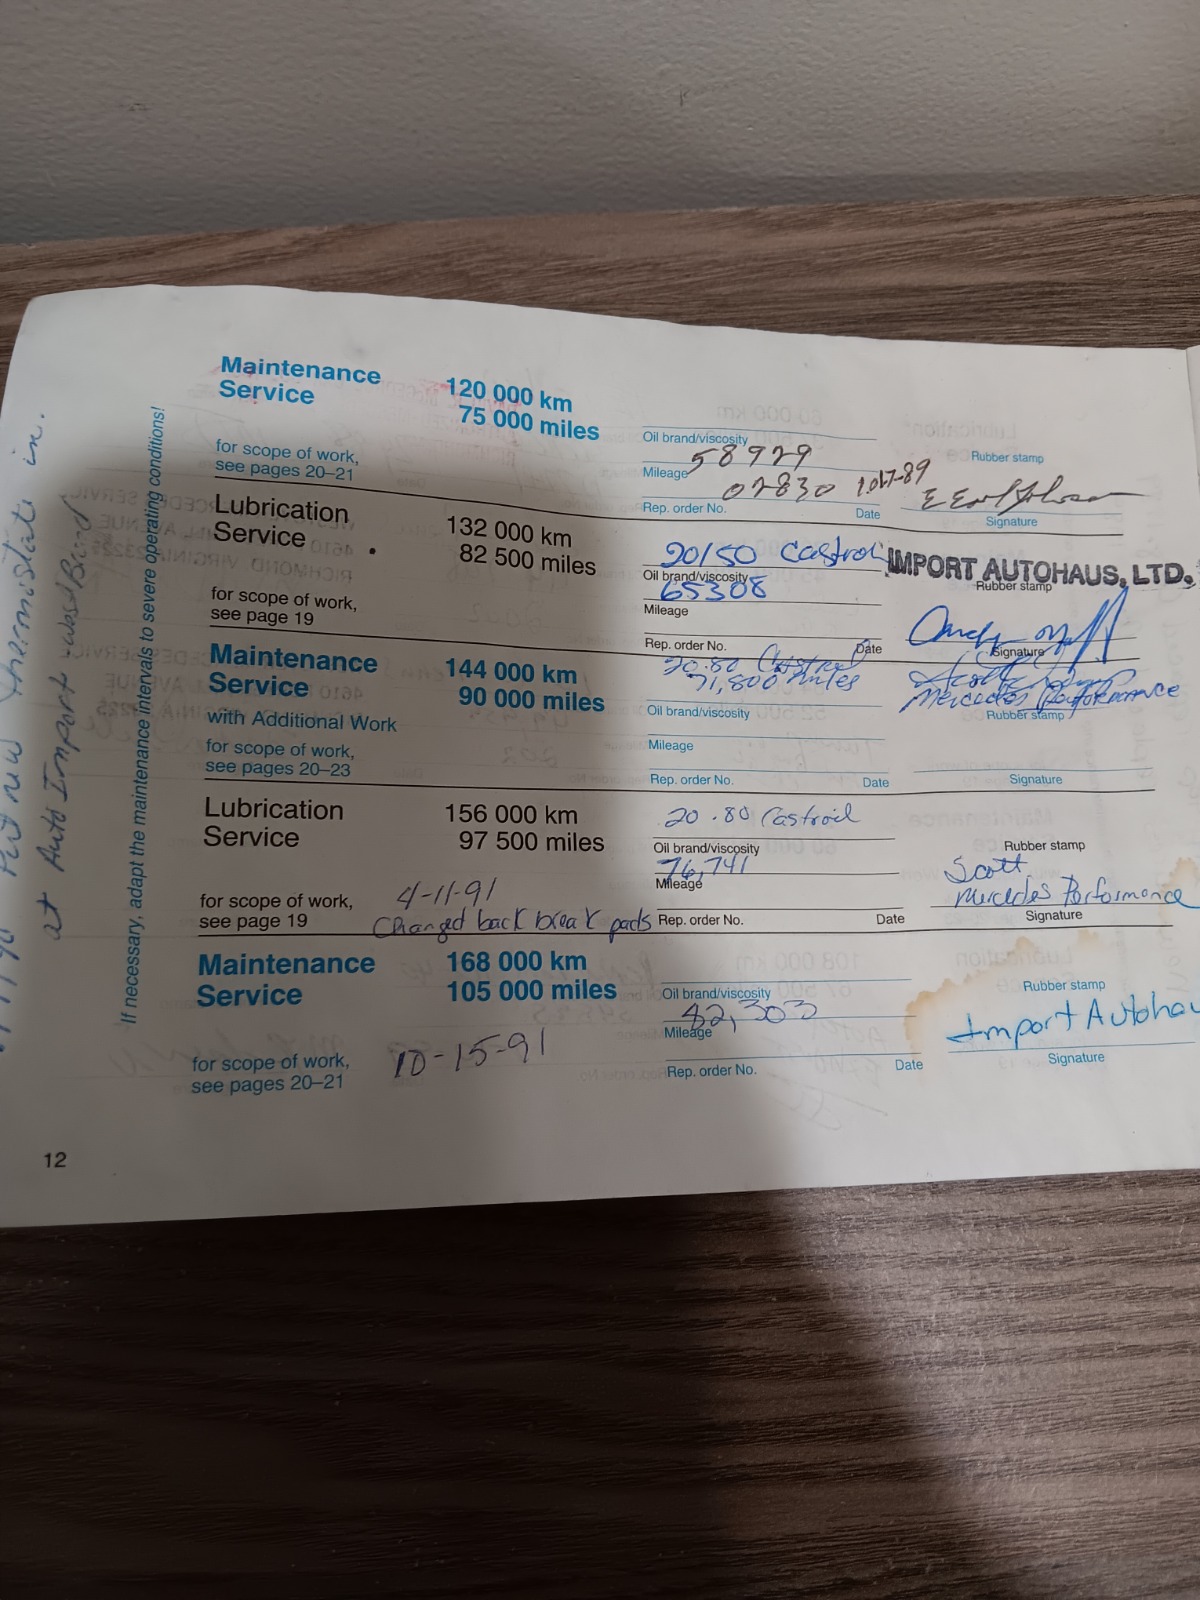 Maintenance
Service
120 000 km
75 000 miles
for scope of work,
see pages 20–21
Oil brand/viscosity
58929
Mileage
02830 10-17-89
Rep. order No.
Date
Rubber stamp
Signature
Lubrication
Service
132 000 km
82 500 miles
for scope of work,
see page 19
20/50 Castrol
Oil brand/viscosity
65308
Mileage
Rep. order No.
Date
IMPORT AUTOHAUS, LTD.
Rubber stamp
Signature
Maintenance
Service
with Additional Work
144 000 km
90 000 miles
for scope of work,
see pages 20–23
20.80 Castroil
71,800 miles
Oil brand/viscosity
Mileage
Rep. order No.
Date
Mercedes Performance
Rubber stamp
Signature
Lubrication
Service
156 000 km
97 500 miles
for scope of work,
see page 19
4-11-91
Changed back break pads
20.80 Castroil
Oil brand/viscosity
76,741
Mileage
Rep. order No.
Date
Rubber stamp
Scott
Mercedes Performance
Signature
Maintenance
Service
168 000 km
105 000 miles
for scope of work,
see pages 20–21
10-15-91
Oil brand/viscosity
82,303
Mileage
Rep. order No.
Date
Rubber stamp
Import Autohau
Signature
If necessary, adapt the maintenance intervals to severe operating conditions!
Put new thermistate in.
at Auto Import
12